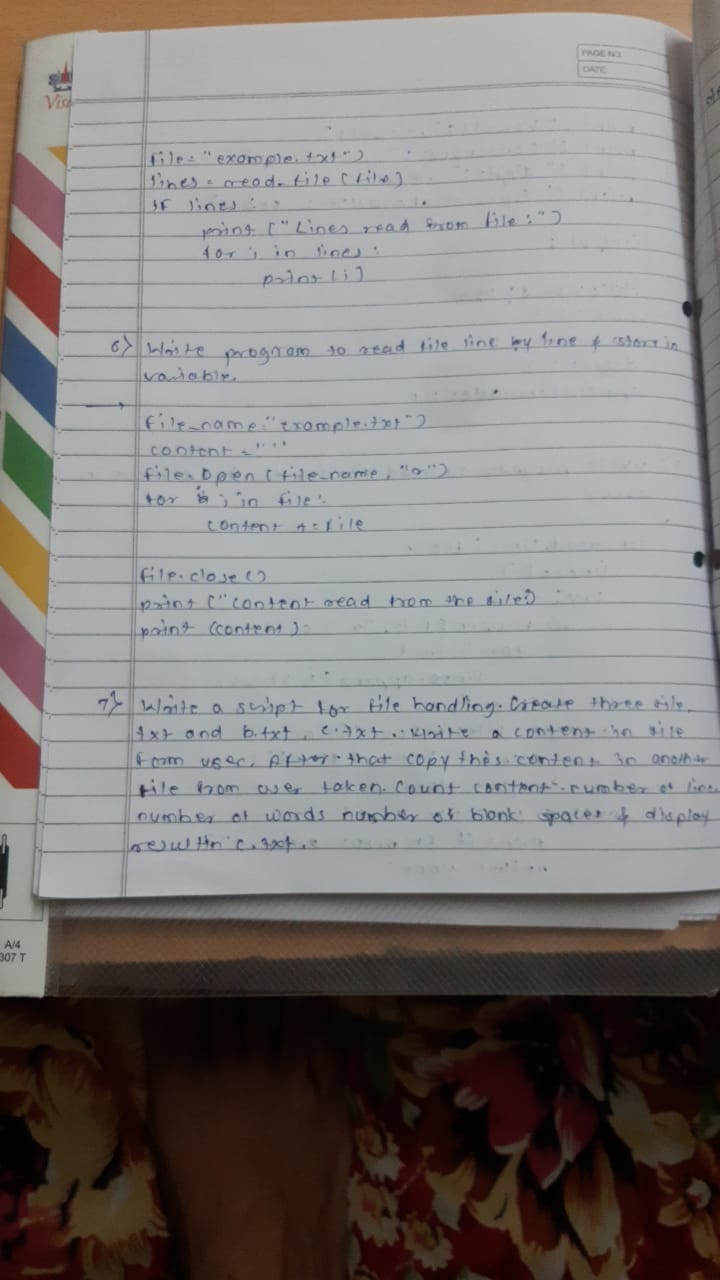 PAGE NO.
DATE
Vis
file = "example.txt")
lines = read_file (file)
If lines :
print ("Lines read from file :")
for i in lines :
print (i)
6) Write program to read file line by line & store in
variable.
file_name = "example.txt")
content = ""
file = Open (file_name, "r")
for i in file :
content += file
file.close ()
print ("content read from the file)
print (content)
7) Write a script for file handling. Create three file.
txt and b.txt, c.txt. Write a content in file
form user, After that copy this content in another
file from user taken. Count content number of line
number of words number of blank spaces & display
result in c.txt.
A/4
307 T